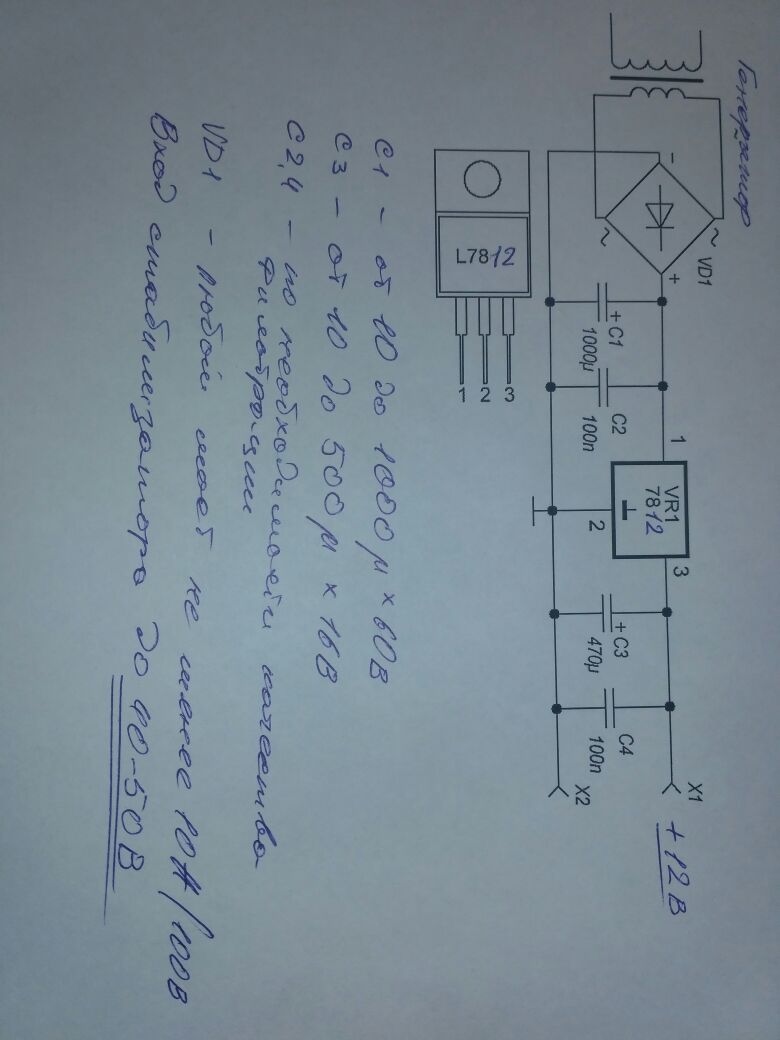 Генератор
VD1
~
~
-
+
+ C1
1000µ
C2
100n
1
VR1
7812
2
3
+ C3
470µ
C4
100n
X1
X2
+12В
L7812
1
2
3
C1 - от 10 до 1000 µ x 60в
C3 - от 10 до 500 µ x 16В
C2,4 - по необходимости качества
фильтрации
VD1 - любой мост не менее 10А/100в
Вход стабилизатора до 40-50В